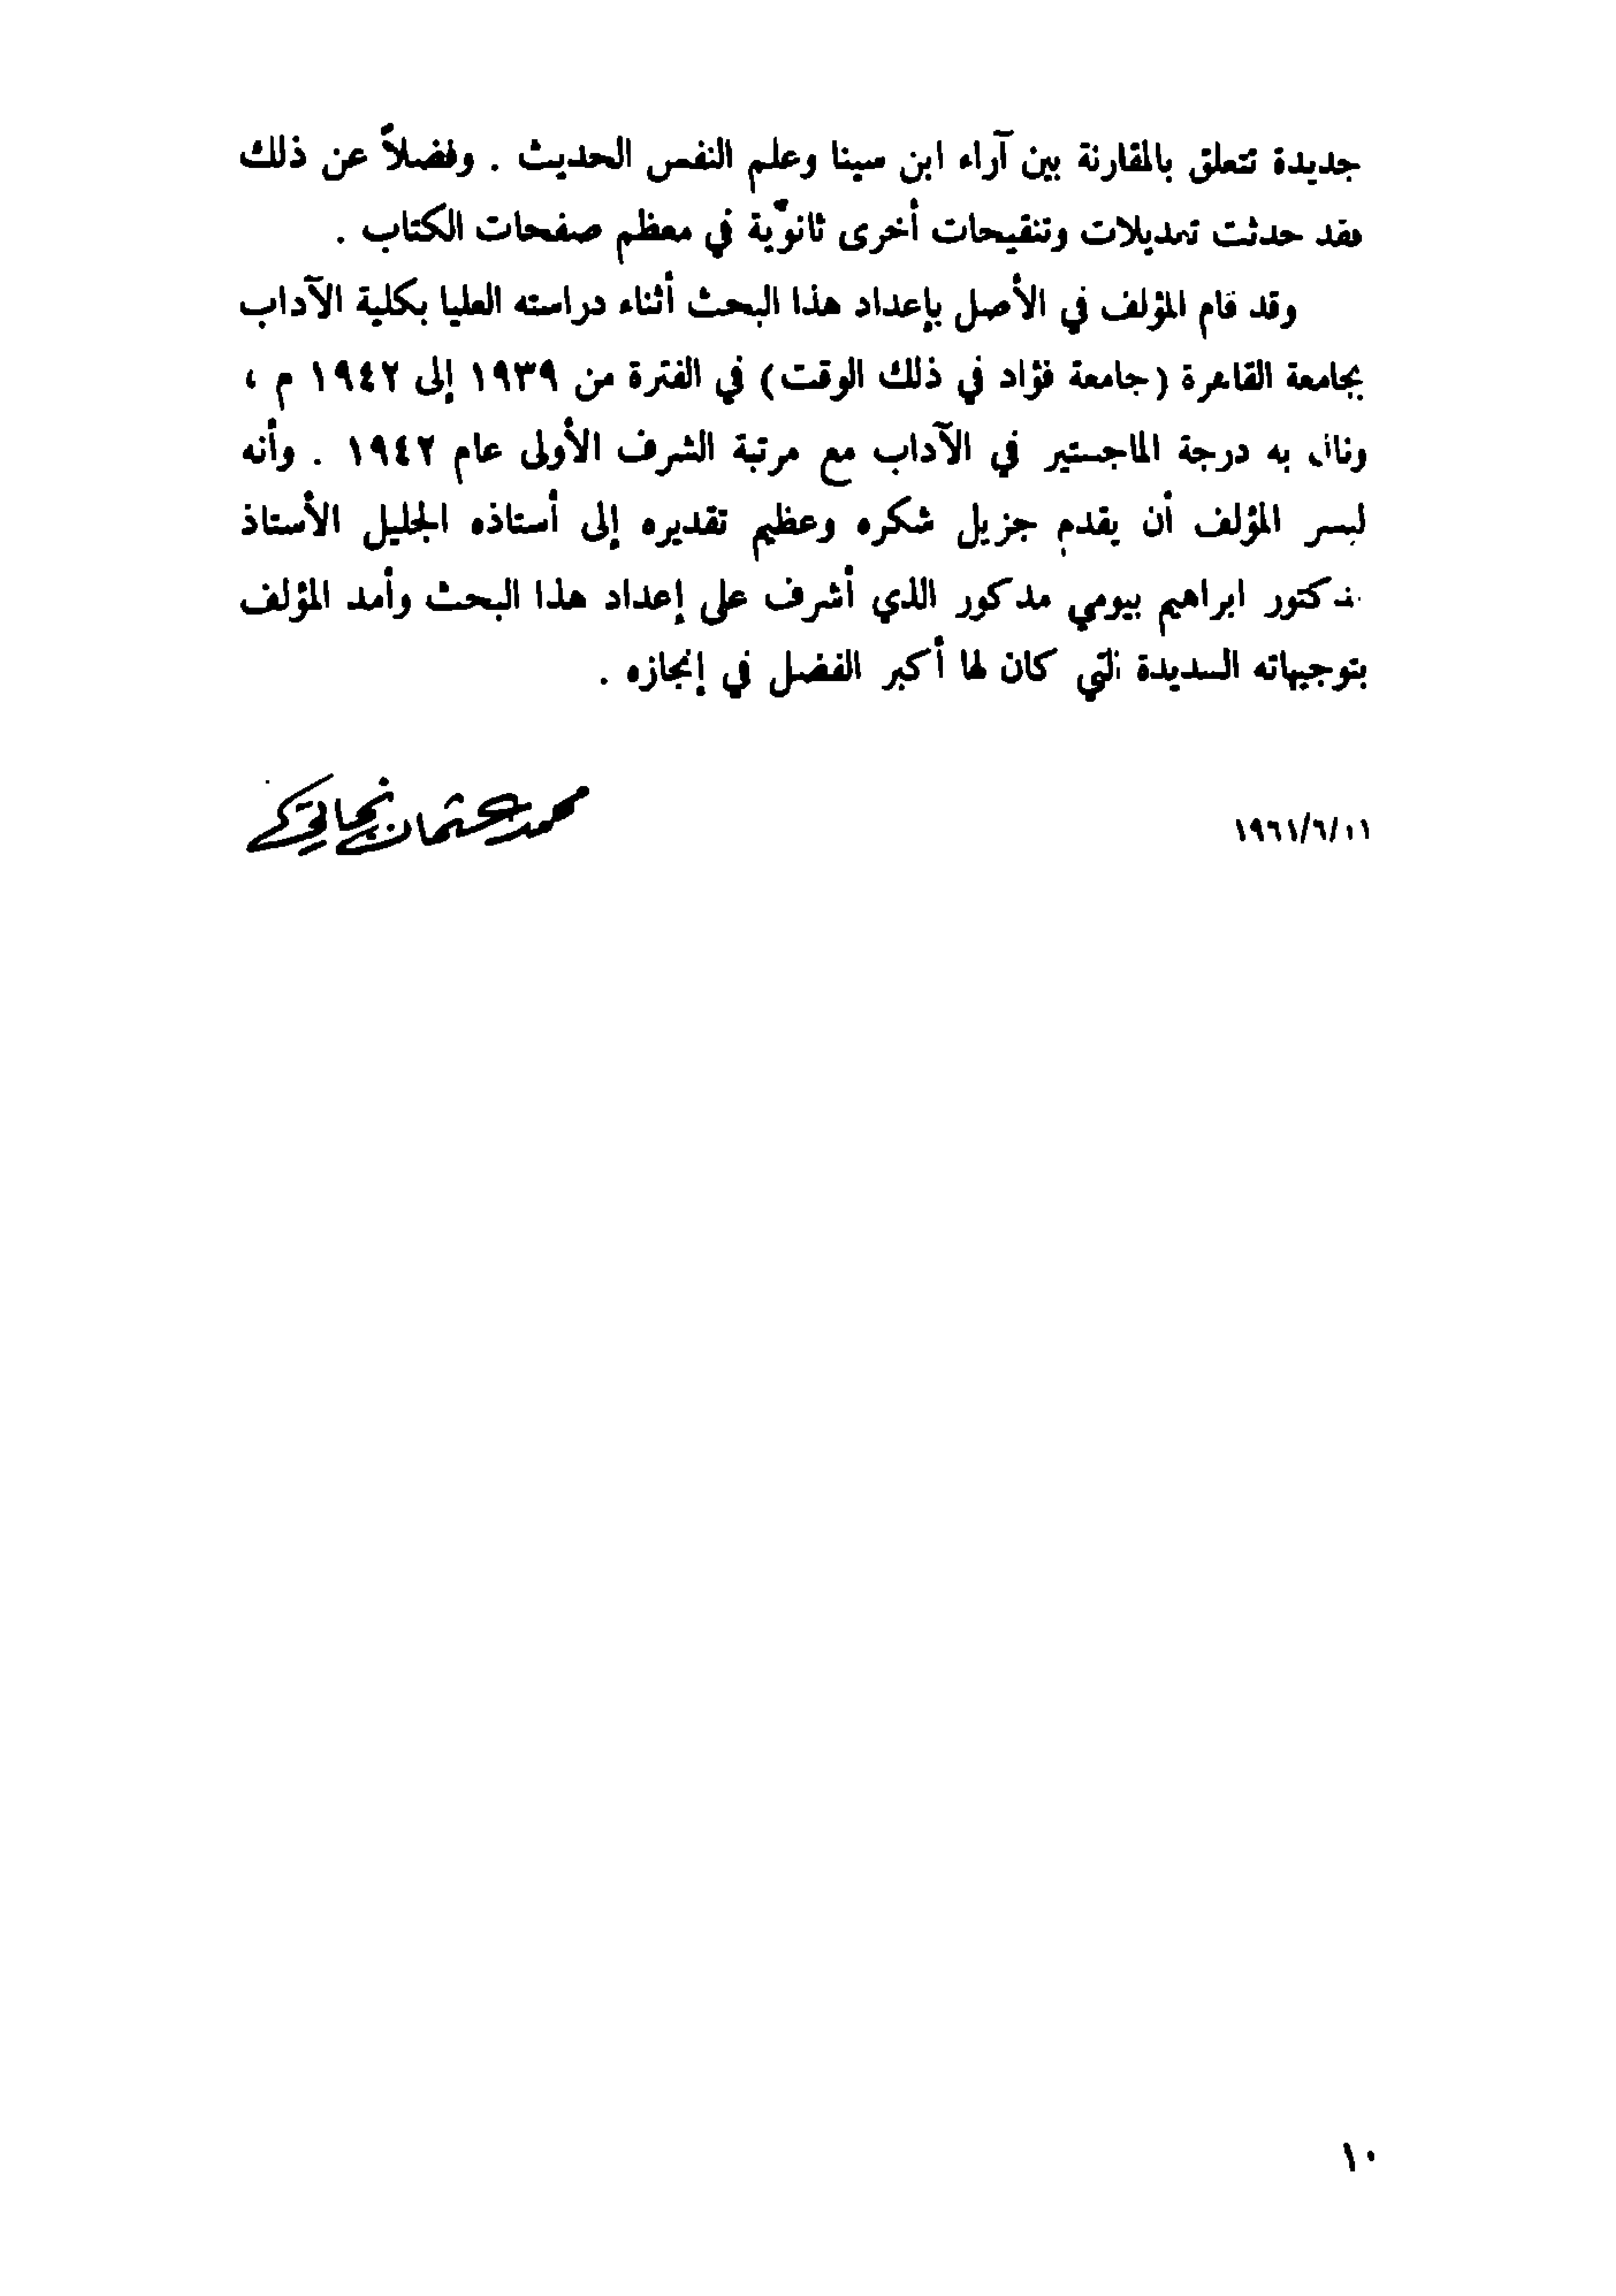 جديدة تتعلق بالمقارنة بين آراء ابن سينا وعلم النفس الحديث . وفضلاً عن ذلك
فقد حدثت تعديلات وتنقيحات أخرى ثانوّية في معظم صفحات الكتاب .
وقد قام المؤلف في الأصل بإعداد هذا البحث أثناء دراسته العليا بكلية الآداب
بجامعة القاهرة (جامعة فؤاد في ذلك الوقت) في الفترة من ١٩٣٩ إلى ١٩٤٢ م ،
ونال به درجة الماجستير في الآداب مع مرتبة الشرف الأولى عام ١٩٤٢ . وأنه
ليسر المؤلف أن يقدم جزيل شكره وعظيم تقديره إلى أستاذه الجليل الأستاذ
الدكتور ابراهيم بيومي مدكور الذي أشرف على إعداد هذا البحث وأمد المؤلف
بتوجيهاته السديدة التي كان لها أكبر الفضل في إنجازه .
محمد عثمان نجاتي
١٩٦١/٦/
١٠